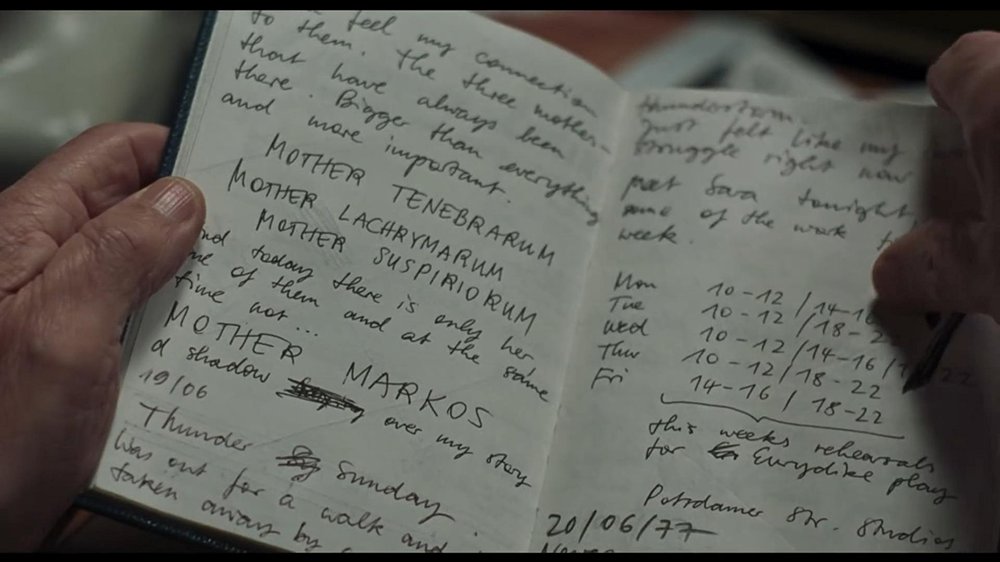 feel my connection
to them. The three mother-
that have always been
there. Bigger than everything
and more important.
MOTHER TENEBRARUM
MOTHER LACHRYMARUM
MOTHER SUSPIRIORUM
nd today there is only her
ne of them and at the same
time not...
MOTHER MARKOS
d shadow over my story
19/06
Thunder Sunday
Was out for a walk and
taken away by
thunderstorm.
Just felt like my
struggle right now
met Sara tonight,
some of the work
week.
Mon 10-12 / 14-16
Tue 10-12 / 18-2
Wed 10-12 / 14-16 / 22
Thur 10-12 / 18-22
Fri 14-16 / 18-22
this weeks rehearsals
for Eurydike play
Potsdamer Str. Studios
20/06/77